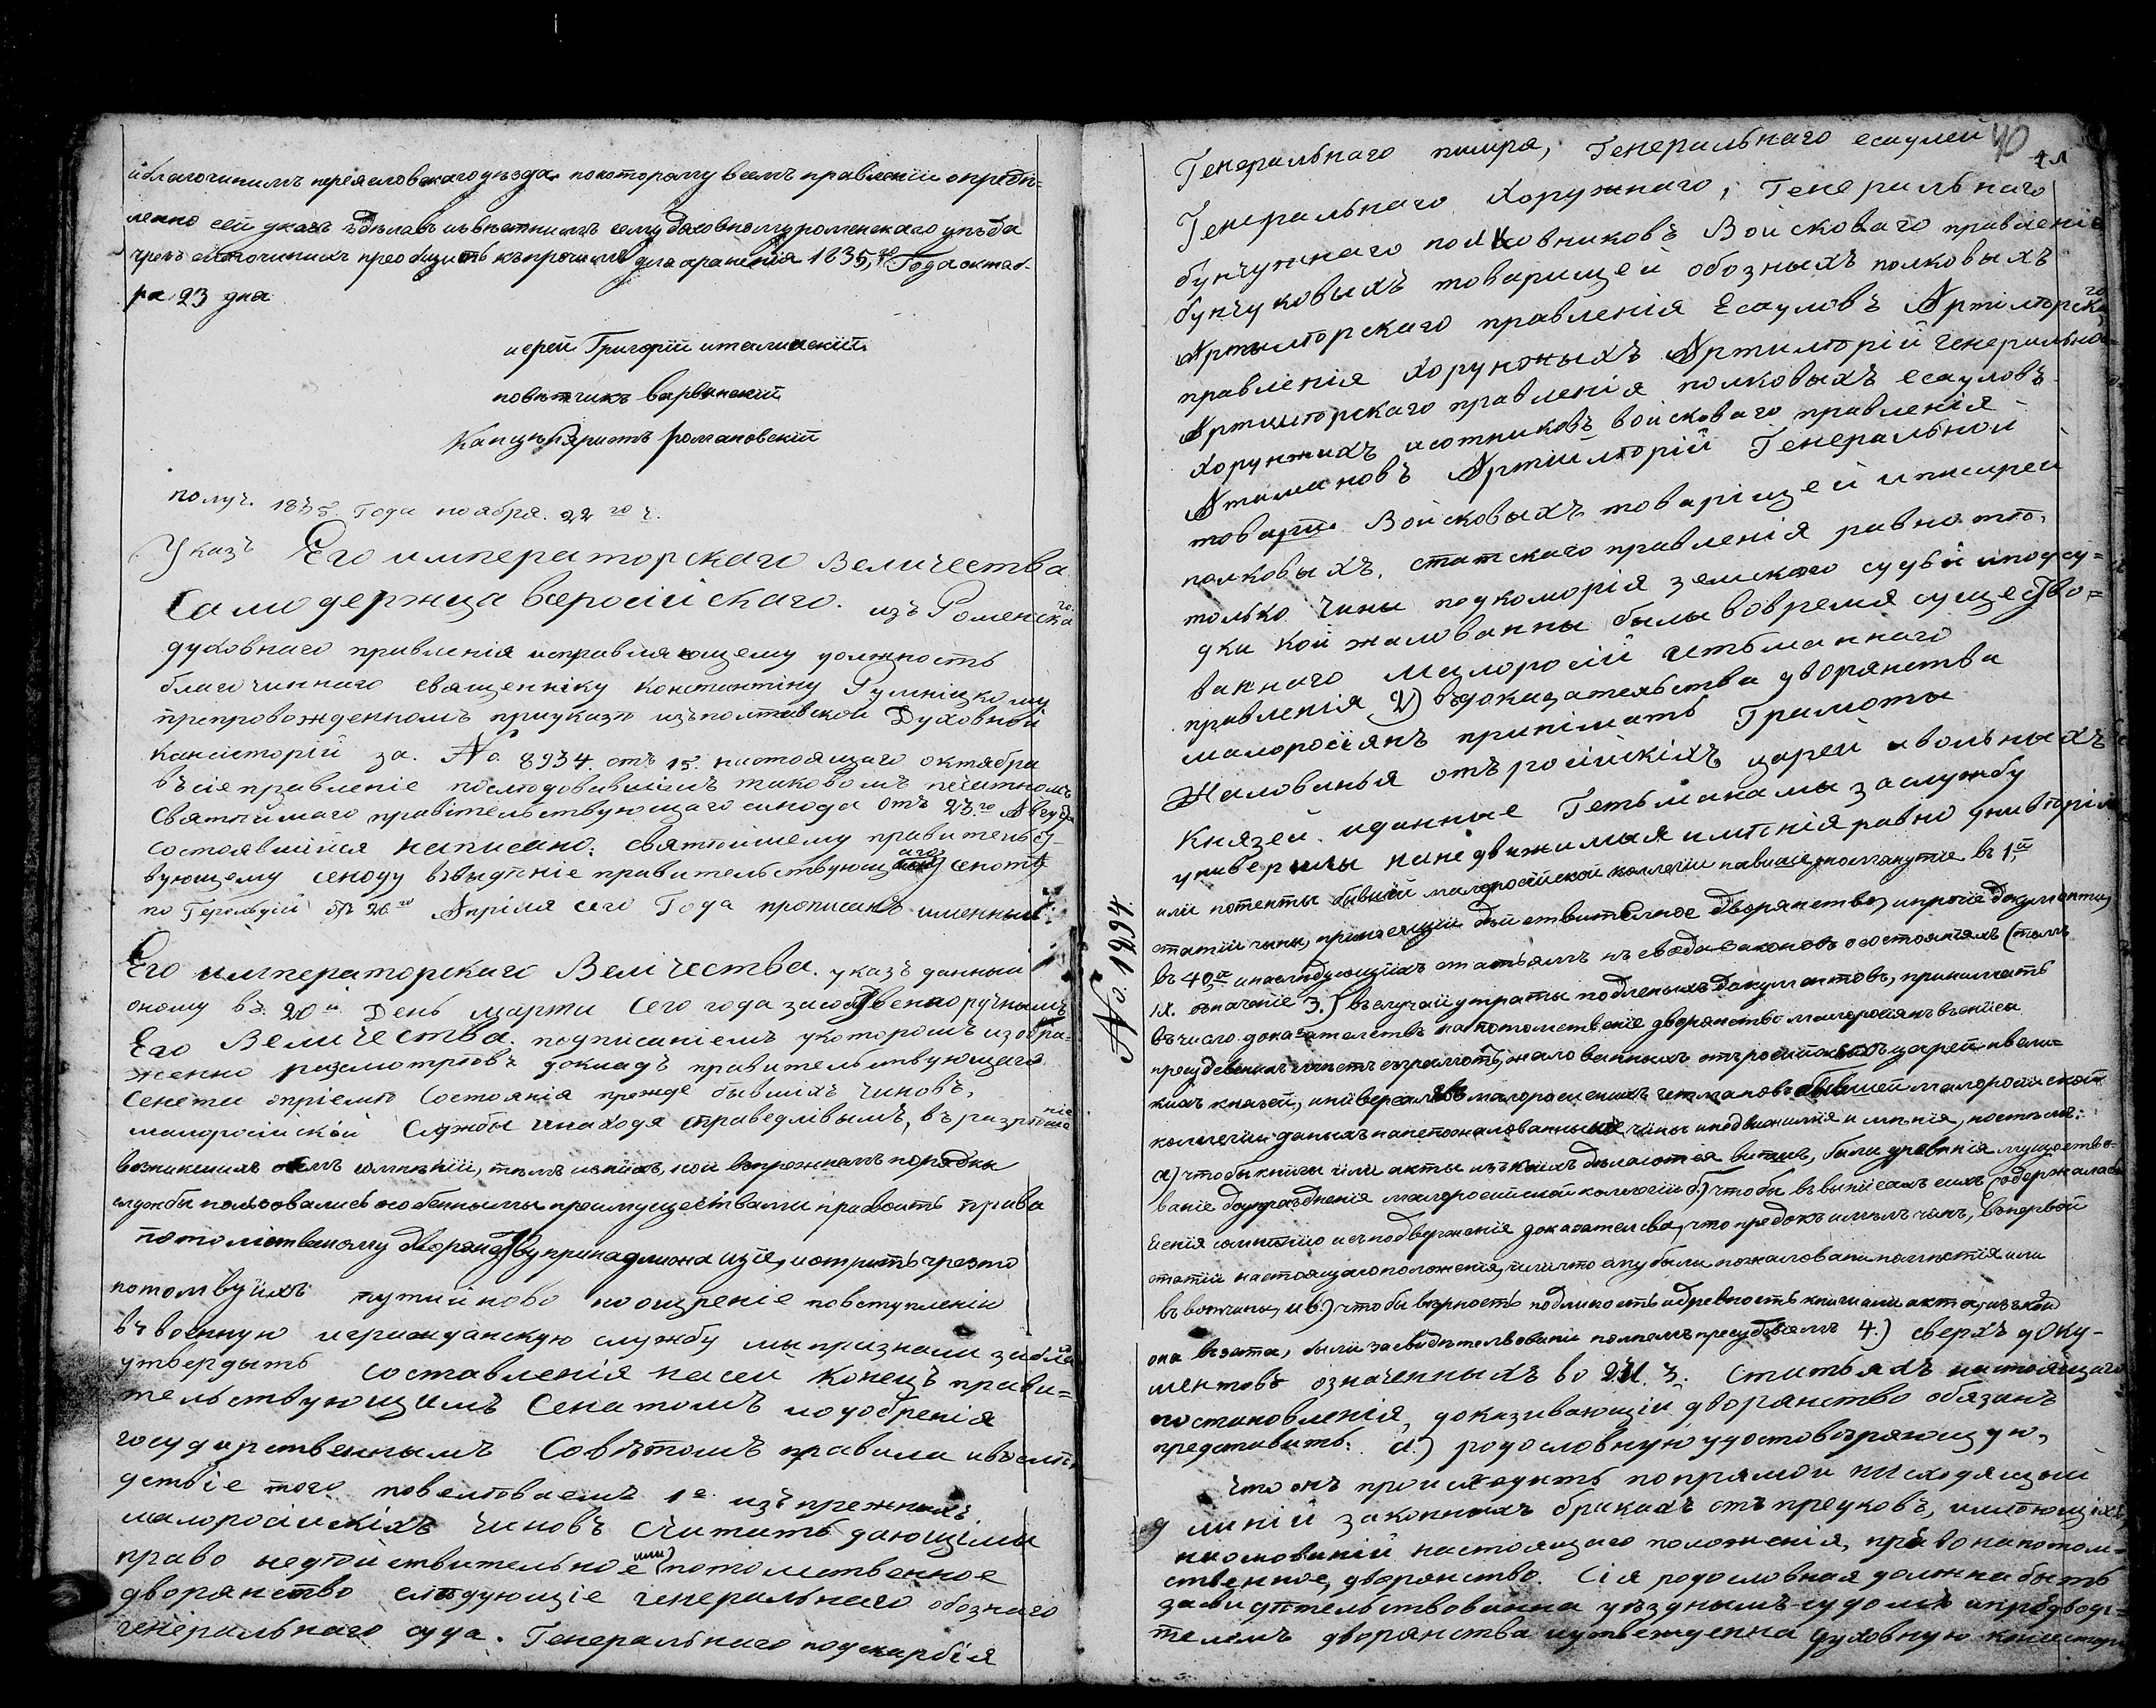 и благочиннимъ переясловскаго уезда. покоторому всемъ правленіи опреде-
ленно сей указъ зделавъ извѣстнимъ сему духовному роменскаго уезда
чрезъ благочинихъ преобщить къ прочимъ для храненія 1835,го Года октяб-
ря 23 дня
иерей Григорій
повѣтчикъ варвинский
Канцеляристъ романовский
получ. 1835. Года ноября. 22 го ч.
Указъ Его императорскаго Величества
Самодержца всеросийскаго. изъ Роменскаго
духовнаго правленія исправляющему должность
благочиннаго священніку Константіну Румніцкому
препровожденномъ приуказѣ изъ полтавской Духовной
Консисторій за. No. 8934. отъ 15. настоящаго октября
въ сіе правленіе последовавшимъ таковомъ печатномъ
Святейшаго правительствующаго синода отъ 23.го Августа
состоявшийся написано: святейшему правительст-
вующему синоду въ выденіе правительствующаго сената
по Герольдіи отъ 26 го Апріля сего Года прописанъ именный.
Его императорскаго Велічества. указъ данный
оному въ. 20 й День марта сего года за собственноручнымъ
Его Величества. подписаніемъ у которомъ изобра-
женно разсмотревъ докладъ правительствующаго
Сената опріеме Состоянія прежде бывшихъ Чиновъ,
малоросийской Службы инаходя справедливымъ, въ разрешеніе
возникшихъ о семъ сомненій, темъ изнихъ, кои впрежнемъ порядки
службы пользовались особенными преимуществами присвоить право
потомственному Дворянству принадлежащія, и открыть чрезто
потомву ихъ путий ново поощреніе повступленіи
въ военную игражданскую службу мы признали за благо
утвердыть составленія насей конецъ прави-
тельствующимъ Сенатомъ иодобренія
государственнымъ Советомъ правила и вослѣ-
дствіе того повелеваемъ 1е. изъ прежнихъ
малоросийскіхъ Чиновъ Считать дающіми
право недействительное или потомственное
дворянство следующіе генеральнаго обознаго
генеральнаго суда. Генеральнаго подскарбія
40
Генеральнаго писаря, Генеральнаго есаулей
Генеральнаго Хоружнаго, Генеральнаго
бунчужнаго полковниковъ Войсковаго правленіе
бунчуковыхъ товарищей обозныхъ полковыхъ
Артылерскаго правленія Есауловъ Артілерскаго
правленія Хорунжыхъ Артилерій Генеральной
Артилерскаго правленія полковыхъ есауловъ
хорунжихъ исотниковъ войсковаго правленія
Атамановъ Артилерій Генеральной
товари. Войсковыхъ товаріщей иписарей
полковыхъ, статскаго правленія равно тѣ.
только Чины подкоморія земского судьи иподсу-
дка кои жалованны былы вовремя существо-
ваннаго малоросій гетьманнаго
правленія 2) въ доказательства дворянства
малоросіянъ прінімать Грамоты
Жалованья отъ російскіхъ царей ивольныхъ
Князей. иданные Гетьманамы заслужбу
универсалы нанедвижимыя именія равно
или патенты бывшій малоросийской коллегіи въ 1,й
статіи чины, приносящій действительное дворянство, ипрочіе документы,
въ 40,й инаследующихъ статьямъ къ свода законовъ о состояніяхъ (томъ
IX. означеніе 3.) въ случай утраты подленыхъ документовъ, принимать
въ число доказателствъ на потомственіе дворянство малоросіянъ выписи
No. 1894.
кихъ князей, универсаловъ малоросийскихъ гетмановъ бывшей малоросийской
а) чтобы книги или акты изъ коихъ делаются выписи, были древнія мущество-
ваніе доупраздненія малоросийской коллегіи б) чтобы въ выписахъ сихъ содержалась
статій настоящаго положенія, или что ему были пожалованы поместія или
въ вотчины, ив.) чтобы верность подлиность и древность книги или акта, изъ коей
она взята, были засвидетельствованы 4.) сверхъ доку-
ментовъ означенныхъ во 2 и 3. Статьяхъ настоящаго
постановленія, доказивающій дворянство обязанъ
представить: а.) родословную удостоверяющую,
что онъ происходитъ попрямой нисходящей
линій законныхъ бракахъ отъ предковъ, имеющіхъ,
наоснованій настоящаго положенія, право напотом-
ственное, дворянство. Сія родословная должна быть
засвидетельствованна уезднымъ-судомъ ипредводи-
телемъ дворянства иутвежденна духовную консистор